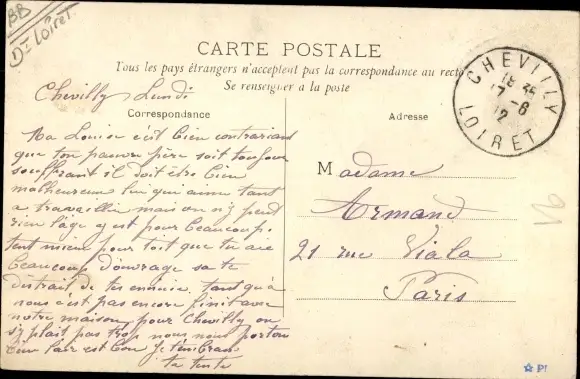 BB
Dt Loiret
CARTE POSTALE
Tous les pays étrangers n'acceptent pas la correspondance au recto
Se renseigner a la poste
Correspondance
Adresse
CHEVILLY
18 35
17 -6
12
LOIRET
Chevilly Lundi
Ma Louise c'est bien contrariant
que ton pauvre père soit toujour
souffrant il doit etre bien
malheureux lui qui aime tant
a travaillier mais on n'y peut
rien l'âge y est pour beaucoup.
tant mieu pour toit que tu aie
beaucoup d'ouvrage sa te
distrait de tes ennuie. tant qu'a
nous c'est pas encore finit avec
notre maison pour Chevilly on
s'y plait pas trop nous nous porton
bien l'air est bon je t'embrasse
ta tante
Madame
Armand
21 rue Viala
Paris
P!